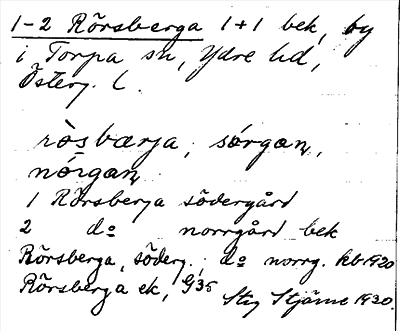 1-2 Rörsberga 1+1 bek, by
i Torpa sn, Ydre hd,
Österg. l.
ròsbærja, sǿrgan,
nórgan
1 Rörsberja södergård
2 dº norrgård bek
Rörsberga, söderg., dº norrg. kb 1920
Rörsberga ek, G35
Stig Stjärne 1930.